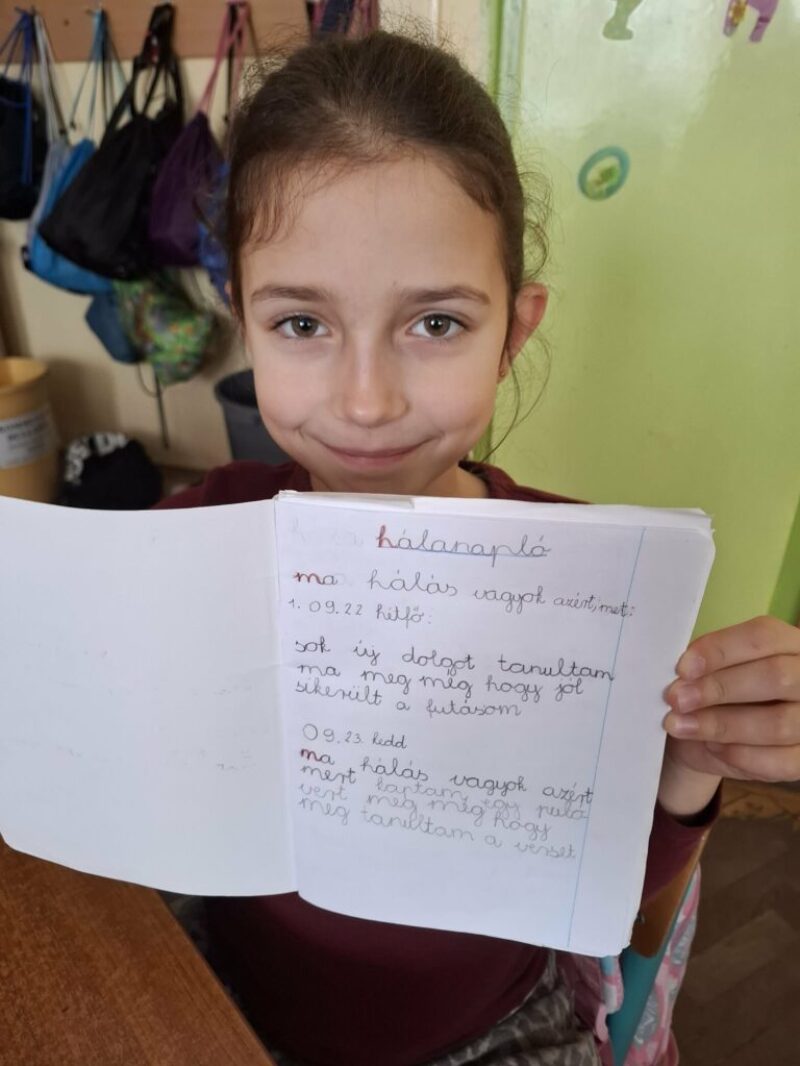 hálanapló
ma hálás vagyok azért, met:
1. 09.22 hétfő:
sok új dolgot tanultam
ma meg még hogy jól
sikerült a futásom
09.23. kedd
ma hálás vagyok azért
mert kaptam egy puló
vert meg még hogy
meg tanultam a verset